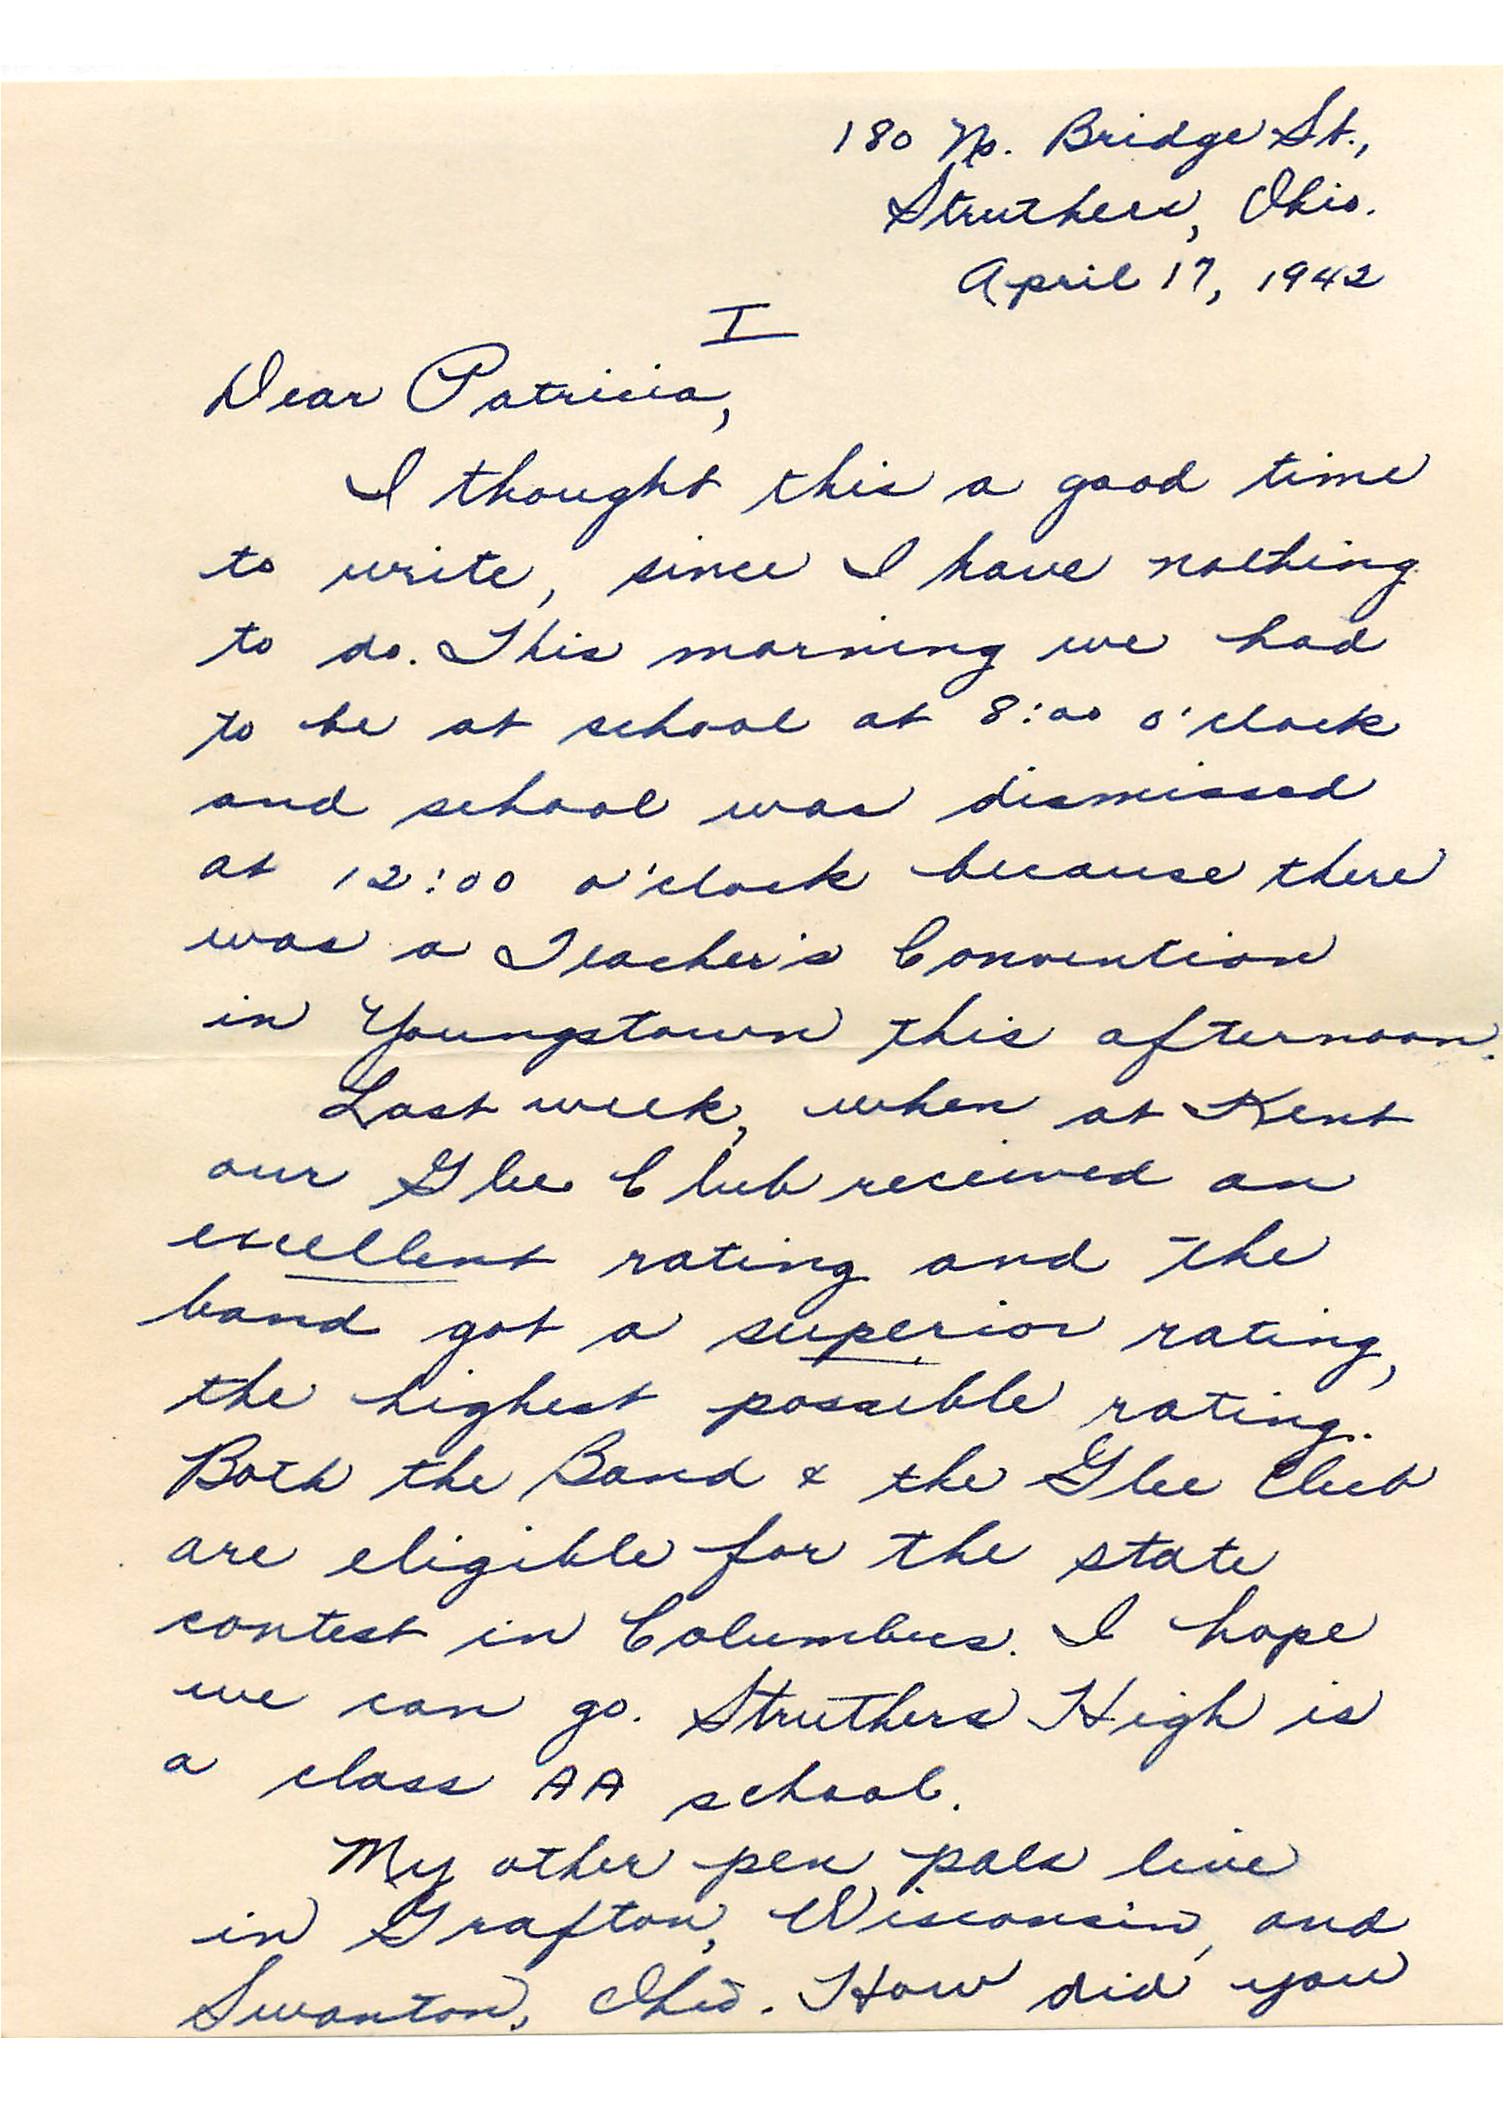 180 No. Bridge St.,
Struthers, Ohio.
April 17, 1942
I
Dear Patricia,
I thought this a good time
to write, since I have nothing
to do. This morning we had
to be at school at 8:00 o'clock
and school was dismissed
at 12:00 o'clock because there
was a Teacher's Convention
in Youngstown this afternoon.
Last week, when at Kent
our Glee Club received an
excellent rating and the
band got a superior rating,
the highest possible rating.
Both the Band & the Glee Club
are eligible for the state
contest in Columbus. I hope
we can go. Struthers High is
a class AA school.
My other pen pals live
in Grafton, Wisconsin, and
Swanton, Ohio. How did you